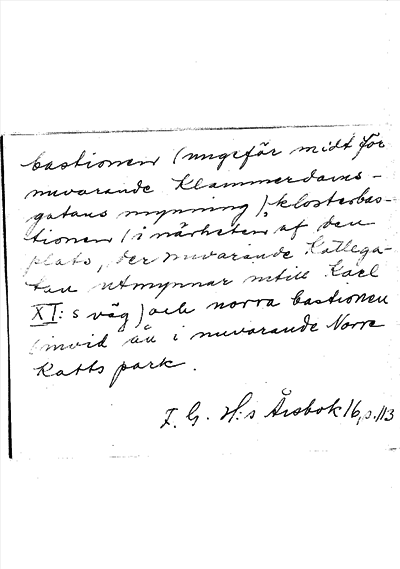 bastionen (ungefär midt för
nuvarande Klammerdams-
gatans mynning), klosterbas-
tionen (i närheten af den
plats, der nuvarande Kattega-
tan utmynnar intill Karl
XI:s väg) och norra bastionen
(invid ån i nuvarande Norre
Katts park.
F. G. H:s Årsbok 16, s. 113